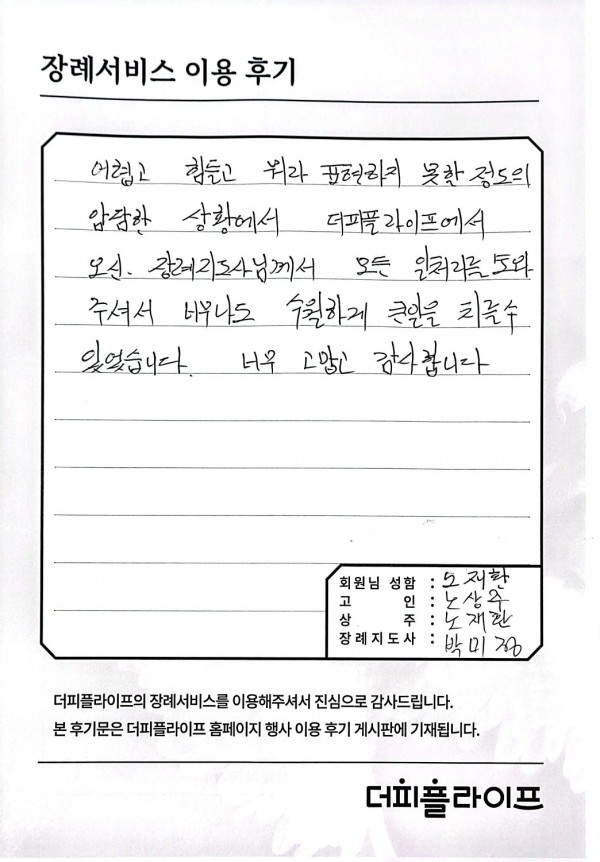 장례서비스 이용 후기
어렵고 힘들고 뭐라 표현하지 못할 정도의
암담한 상황에서 더피플라이프에서
오신. 장례지도사님께서 모든 일처리를 도와
주셔서 너무나도 수월하게 큰일을 치를수
있었습니다. 너무 고맙고 감사합니다
회원님 성함 : 노재환
고 인 : 노상주
상 주 : 노재환
장례지도사 : 박미정
더피플라이프의 장례서비스를 이용해주셔서 진심으로 감사드립니다.
본 후기문은 더피플라이프 홈페이지 행사 이용 후기 게시판에 기재됩니다.
더피플라이프